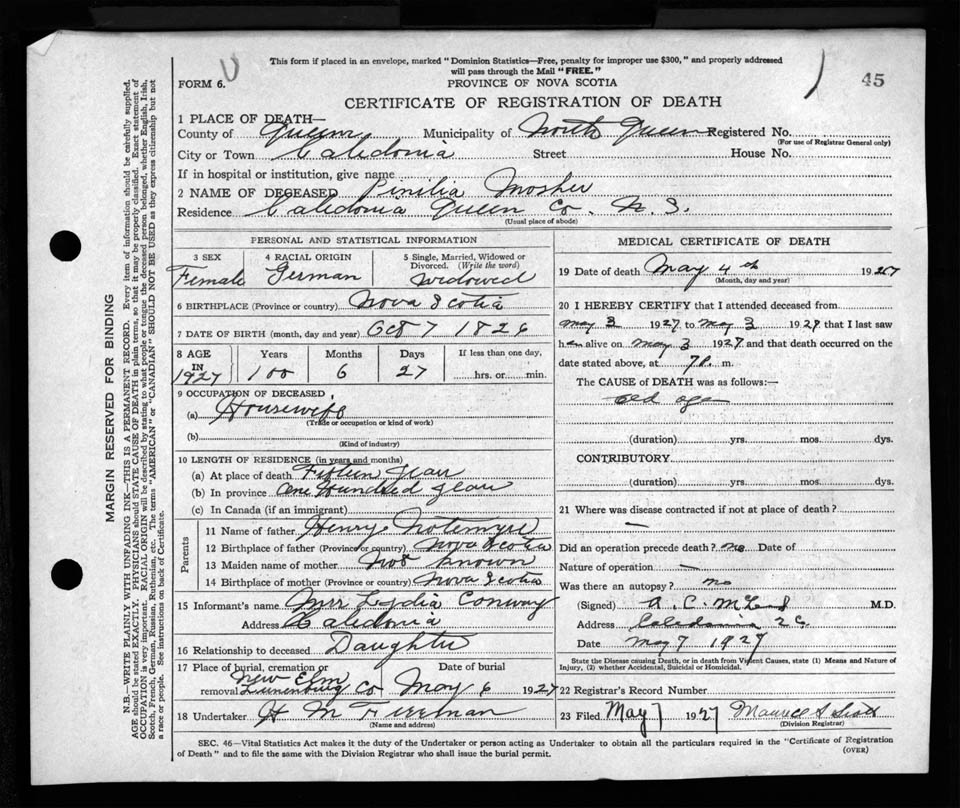 This form if placed in an envelope, marked "Dominion Statistics—Free, penalty for improper use $300," and properly addressed
will pass through the Mail "FREE."
FORM 6.
PROVINCE OF NOVA SCOTIA
45
CERTIFICATE OF REGISTRATION OF DEATH
1 PLACE OF DEATH—
County of Queens Municipality of North Queens Registered No.
(For use of Registrar General only)
City or Town Caledonia Street House No.
If in hospital or institution, give name
2 NAME OF DECEASED Mosher
Residence Caledonia Queen Co. N. S.
(Usual place of abode)
PERSONAL AND STATISTICAL INFORMATION
3 SEX 4 RACIAL ORIGIN 5 Single, Married, Widowed or
Divorced. (Write the word)
Female German Widowed
6 BIRTHPLACE (Province or country) Nova Scotia
7 DATE OF BIRTH (month, day and year) Oct 7 1826
8 AGE Years Months Days If less than one day,
IN
1927 100 6 27 hrs. or min.
9 OCCUPATION OF DECEASED
(a) Housewife
(Trade or occupation or kind of work)
(b)
(Kind of industry)
10 LENGTH OF RESIDENCE (in years and months)
(a) At place of death Fifteen years
(b) In province One Hundred years
(c) In Canada (if an immigrant)
Parents
11 Name of father Henry
12 Birthplace of father (Province or country) Nova Scotia
13 Maiden name of mother Not known
14 Birthplace of mother (Province or country) Nova Scotia
15 Informant's name Mrs Lydia Conway
Address Caledonia
16 Relationship to deceased Daughter
17 Place of burial, cremation or Date of burial
removal New Elm
Lunenburg Co May 6 1927
18 Undertaker H M Freeman
(Name and address)
MEDICAL CERTIFICATE OF DEATH
19 Date of death May 4th 1927
(Month, day and year)
20 I HEREBY CERTIFY that I attended deceased from
May 3 1927 to May 3 1927 that I last saw
her alive on May 3 1927 and that death occurred on the
date stated above, at 7 P. m.
The CAUSE of DEATH was as follows:—
old age
(duration) yrs. mos. dys.
CONTRIBUTORY
(duration) yrs. mos. dys.
21 Where was disease contracted if not at place of death?
—
Did an operation precede death? no Date of
Nature of operation —
Was there an autopsy? no
(Signed) A. C. M.D.
Address Caledonia
Date May 7 1927
State the Disease causing Death, or in death from Violent Causes, state (1) Means and Nature of
Injury, (2) whether Accidental, Suicidal or Homicidal.
22 Registrar's Record Number
23 Filed May 7 1927 Maurice S Scott
(Division Registrar)
SEC. 46—Vital Statistics Act makes it the duty of the Undertaker or person acting as Undertaker to obtain all the particulars required in the "Certificate of Registration
of Death" and to file the same with the Division Registrar who shall issue the burial permit.
(OVER)
MARGIN RESERVED FOR BINDING
N.B.—WRITE PLAINLY WITH UNFADING INK—THIS IS A PERMANENT RECORD. Every item of information should be carefully supplied.
AGE should be stated EXACTLY. PHYSICIANS should STATE CAUSE OF DEATH in plain terms, so that it may be properly classified. Exact statement of
OCCUPATION is very important. RACIAL ORIGIN will be described by stating to what people or tongue the deceased person belonged, whether English, Irish,
Scotch, French, German, Russian, Ruthenian, etc. The terms "AMERICAN" or "CANADIAN" SHOULD NOT BE USED as they express citizenship but not
a race or people. See instructions on back of Certificate.